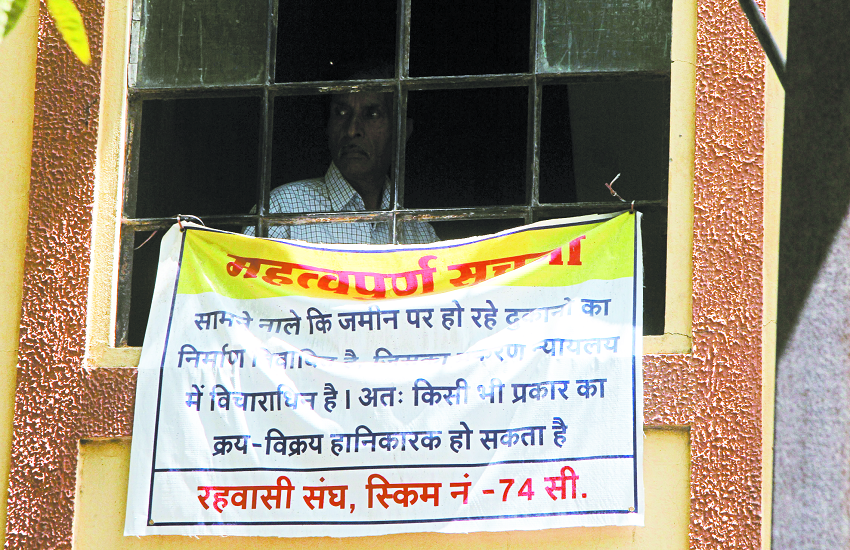 महत्वपूर्ण सूचना
सामने नाले कि जमीन पर हो रहे दुकानो का
निर्माण विवादित है, जिसका प्रकरण न्यायलय
में विचाराधिन है। अतः किसी भी प्रकार का
क्रय-विक्रय हानिकारक हो सकता है
रहवासी संघ, स्किम नं -74 सी.